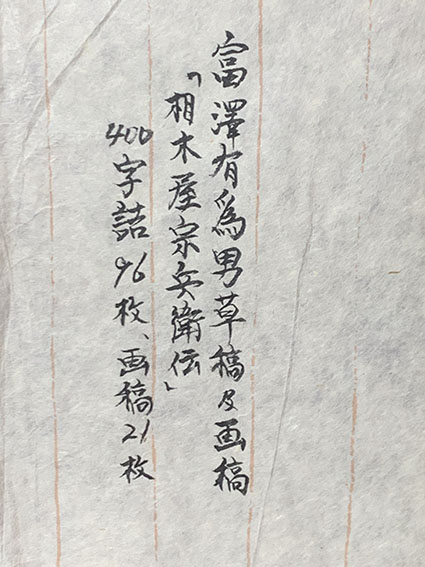 富澤有爲男草稿及画稿
「相木屋宗兵衛伝」
400字詰96枚、画稿21枚